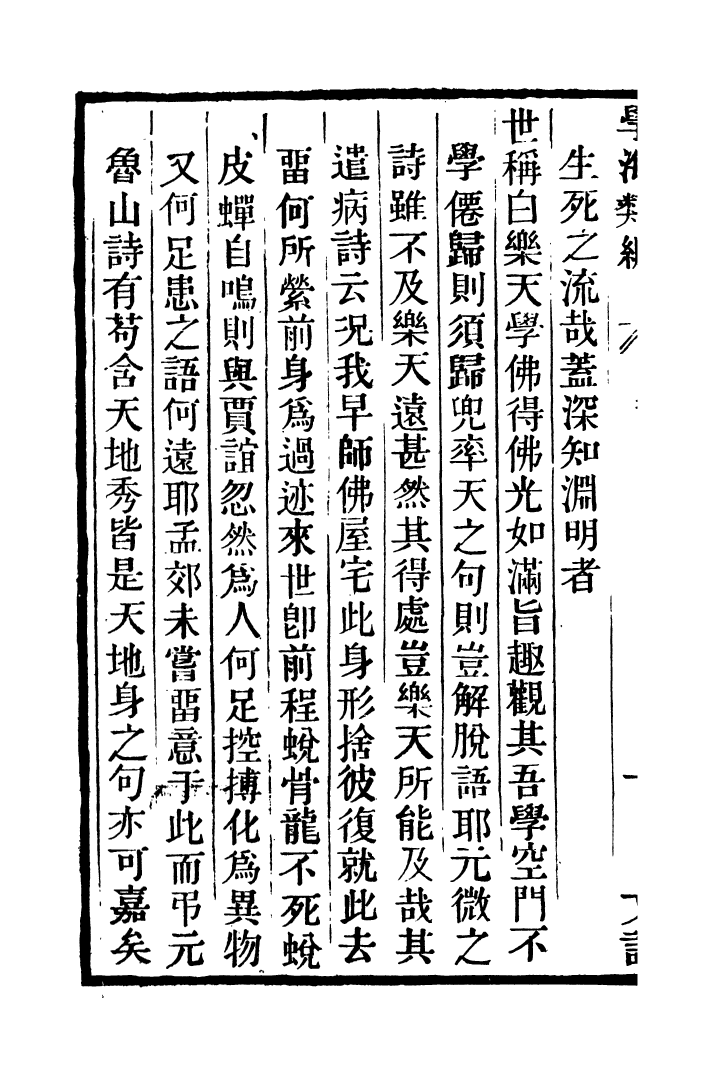 學海類編
生死之流哉蓋深知淵明者
世稱白樂天學佛得佛光如滿旨趣觀其吾學空門不
學僊歸則須歸兜率天之句則豈解脫語耶元微之
詩雖不及樂天遠甚然其得處豈樂天所能及哉其
遣病詩云況我早師佛屋宅此身形捨彼復就此去
畱何所縈前身爲過迹來世卽前程蛻骨龍不死蛻
皮蟬自鳴則與賈誼忽然爲人何足控摶化爲異物
又何足患之語何遠耶孟郊未嘗畱意于此而弔元
魯山詩有苟含天地秀皆是天地身之句亦可嘉矣